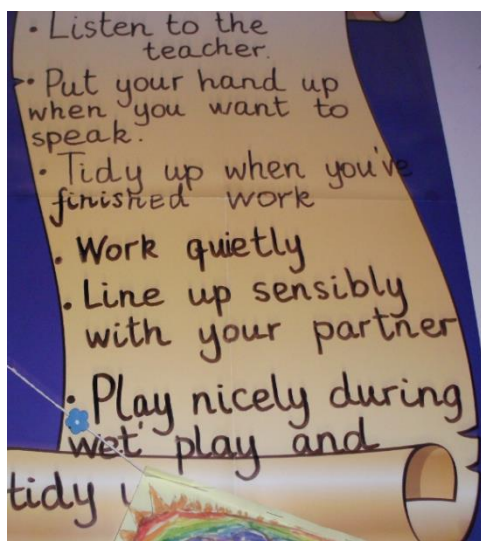 • Listen to the
teacher.
• Put your hand up
when you want to
speak.
• Tidy up when you've
finished work
• Work quietly
• Line up sensibly
with your partner
• Play nicely during
'wet' play and
tidy